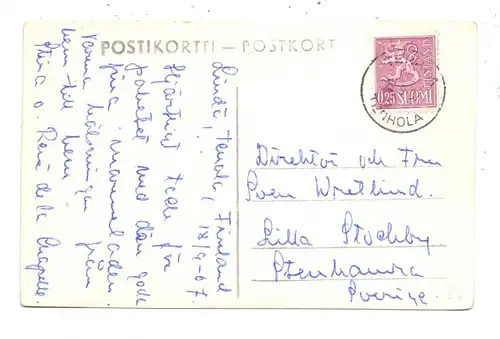 POSTIKORTTI — POSTKORT
Lindö, Tenala, Finland
18/9-67.
Hjärtligt tack för
paketet med den goda
fina marmeladen.
Varma hälsningar från
hem till hem
Stina o. René de la Chapelle.
0,25 SUOMI
TENHOLA
Direktör och Fru
Sven Wretlind.
Lilla Stockby
Stenhamra
Sverige.